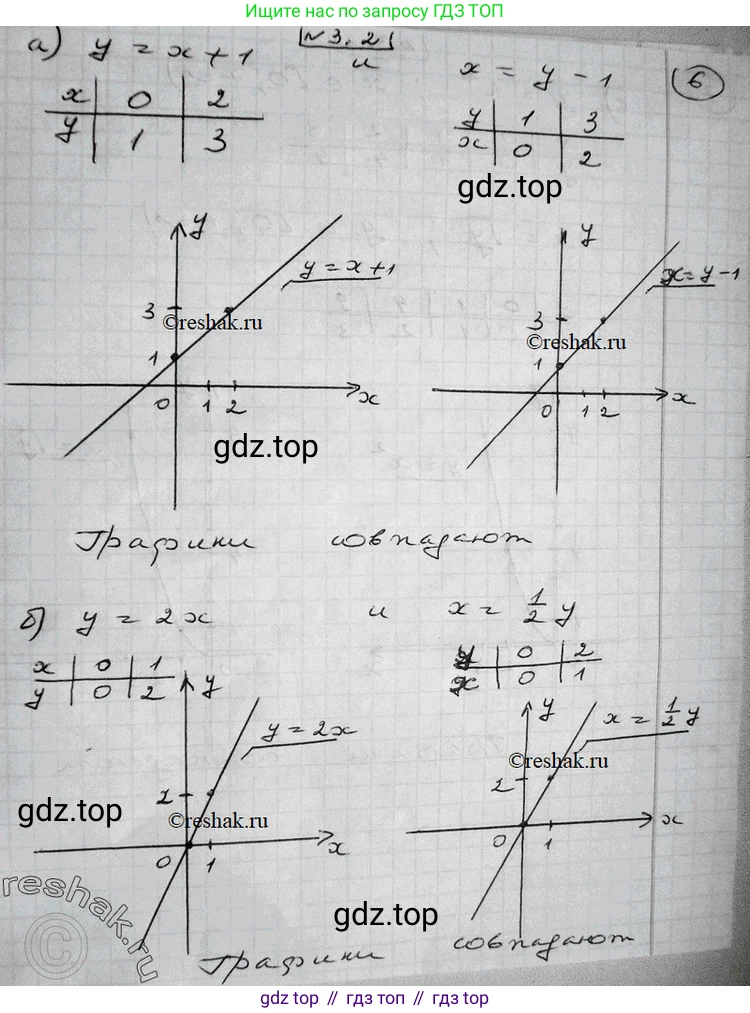 Ищите нас по запросу ГДЗ ТОП
а) y = x + 1 №3.2 и x = y - 1 6
x 0 2
y 1 3
y 1 3
x 0 2
gdz.top
y
y = x + 1
3
©reshak.ru
1
0 1 2 x
gdz.top
y
x = y - 1
3
©reshak.ru
1
0 1 2 x
Графики совпадают
б) y = 2x и x = 1/2 y
x 0 1
y 0 2
y 0 2
x 0 1
y
y = 2x
2
gdz.top
©reshak.ru
0 1 x
y
x = 1/2 y
©reshak.ru
2
0 1 x
reshak.ru
©
gdz.top
Графики совпадают
gdz top // гдз топ // gdz top